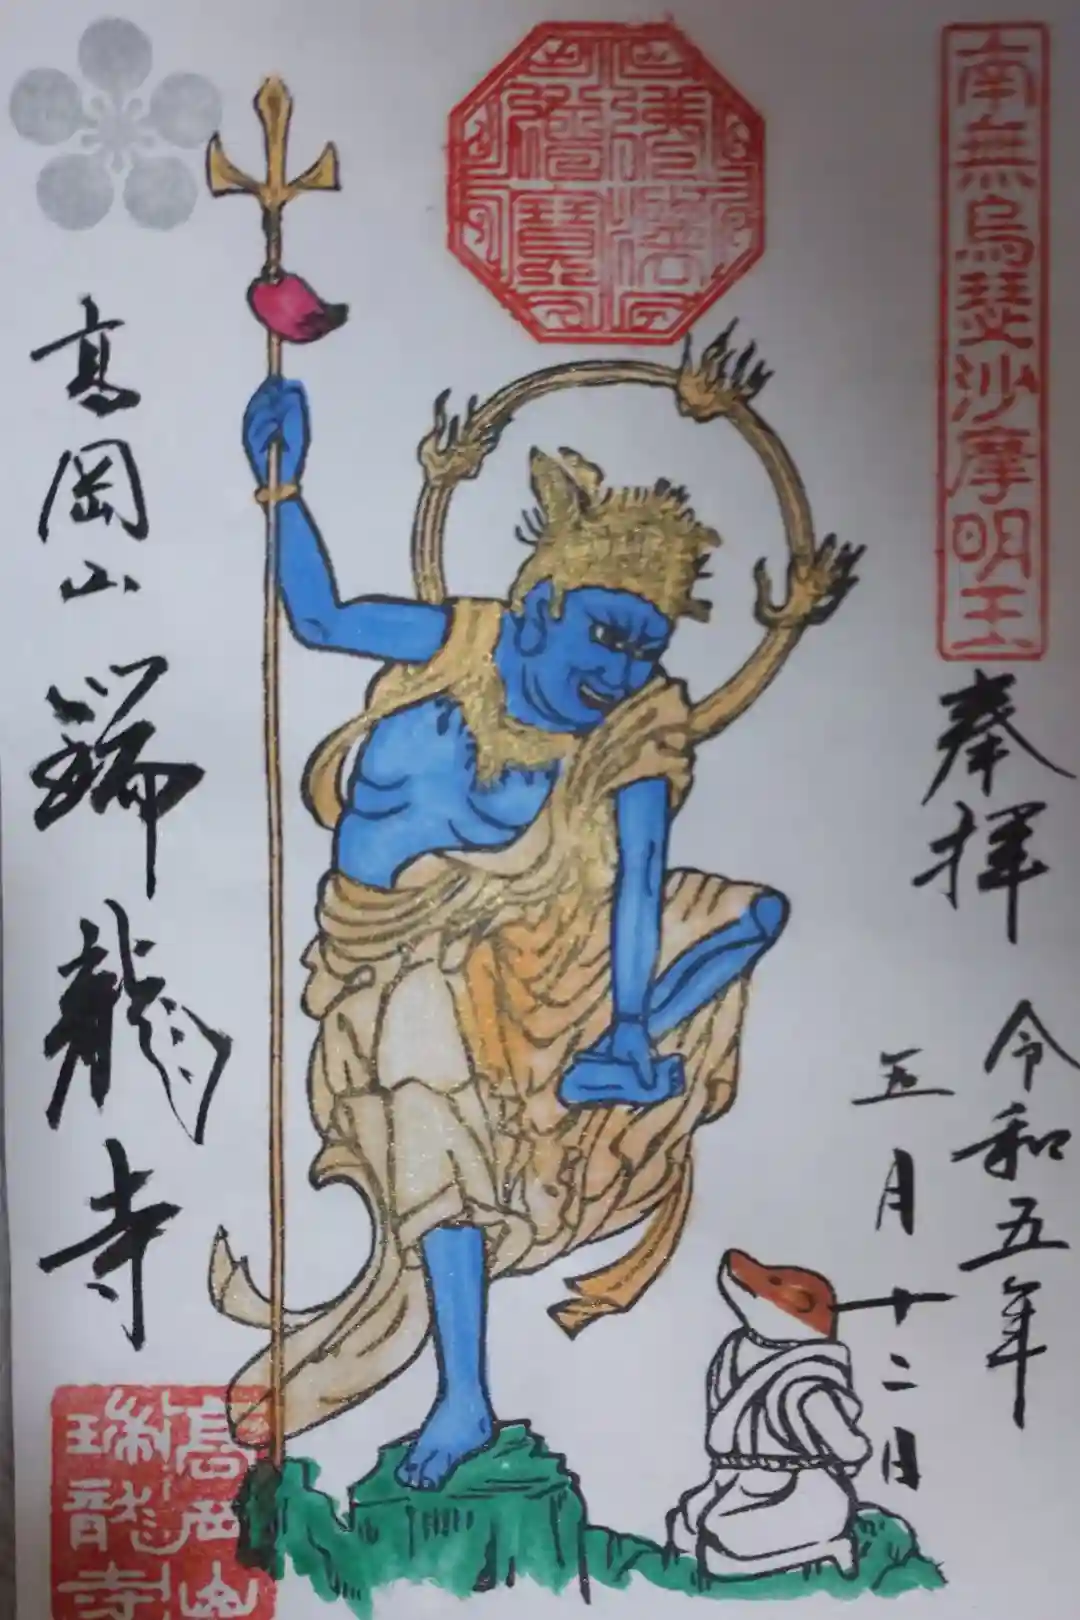 南無烏瑟沙摩明王
奉拝
令和五年
五月十二日
高岡山瑞龍寺
高岡山
瑞龍寺